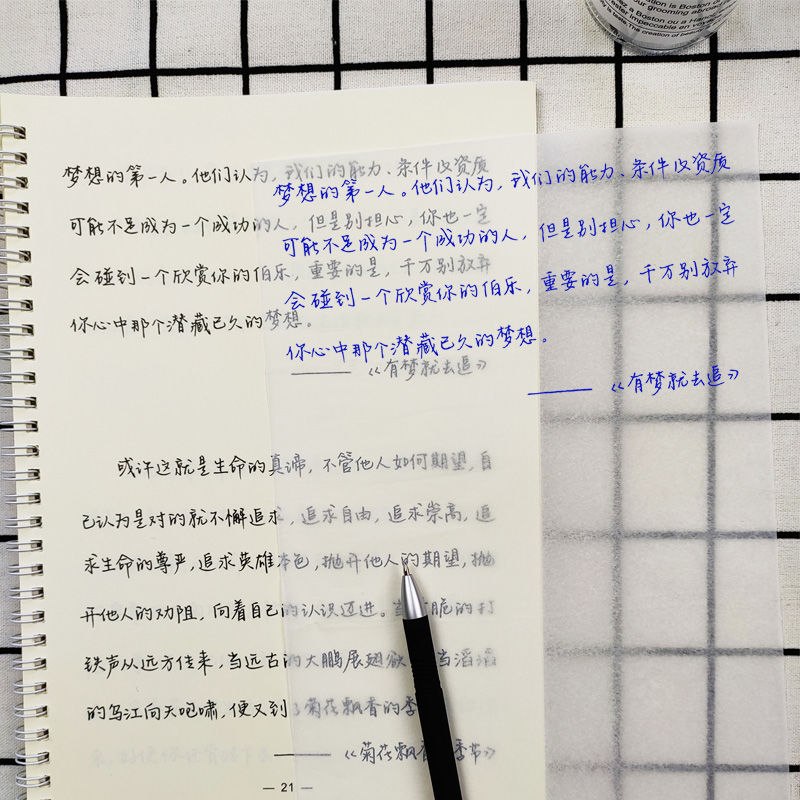 梦想的第一人。他们认为，我们的能力、条件以资质
可能不足成为一个成功的人，但是别担心，你也一定
会碰到一个欣赏你的伯乐，重要的是，千万别放弃
你心中那个潜藏已久的梦想。
——《有梦就去追》
梦想的第一人。他们认为，我们的能力、条件以资质
可能不足成为一个成功的人，但是别担心，你也一定
会碰到一个欣赏你的伯乐，重要的是，千万别放弃
你心中那个潜藏已久的梦想。
——《有梦就去追》
或许这就是生命的真谛，不管他人如何期望，自
己认为是对的就不懈追求，追求自由，追求崇高，追
求生命的尊严，追求英雄本色，抛开他人的期望，抛
开他人的劝阻，向着自己的认识迈进。当清脆的打
铁声从远方传来，当远古的大鹏展翅欲 当滔滔
的乌江向天咆啸，便又到了菊花飘香的季
——《菊花飘香 季节》
— 21 —